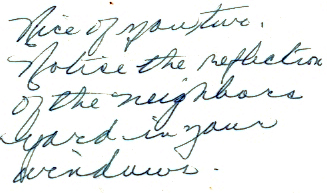 Nice of you two.
Notice the reflection
of the neighbors
yard in your
windows.